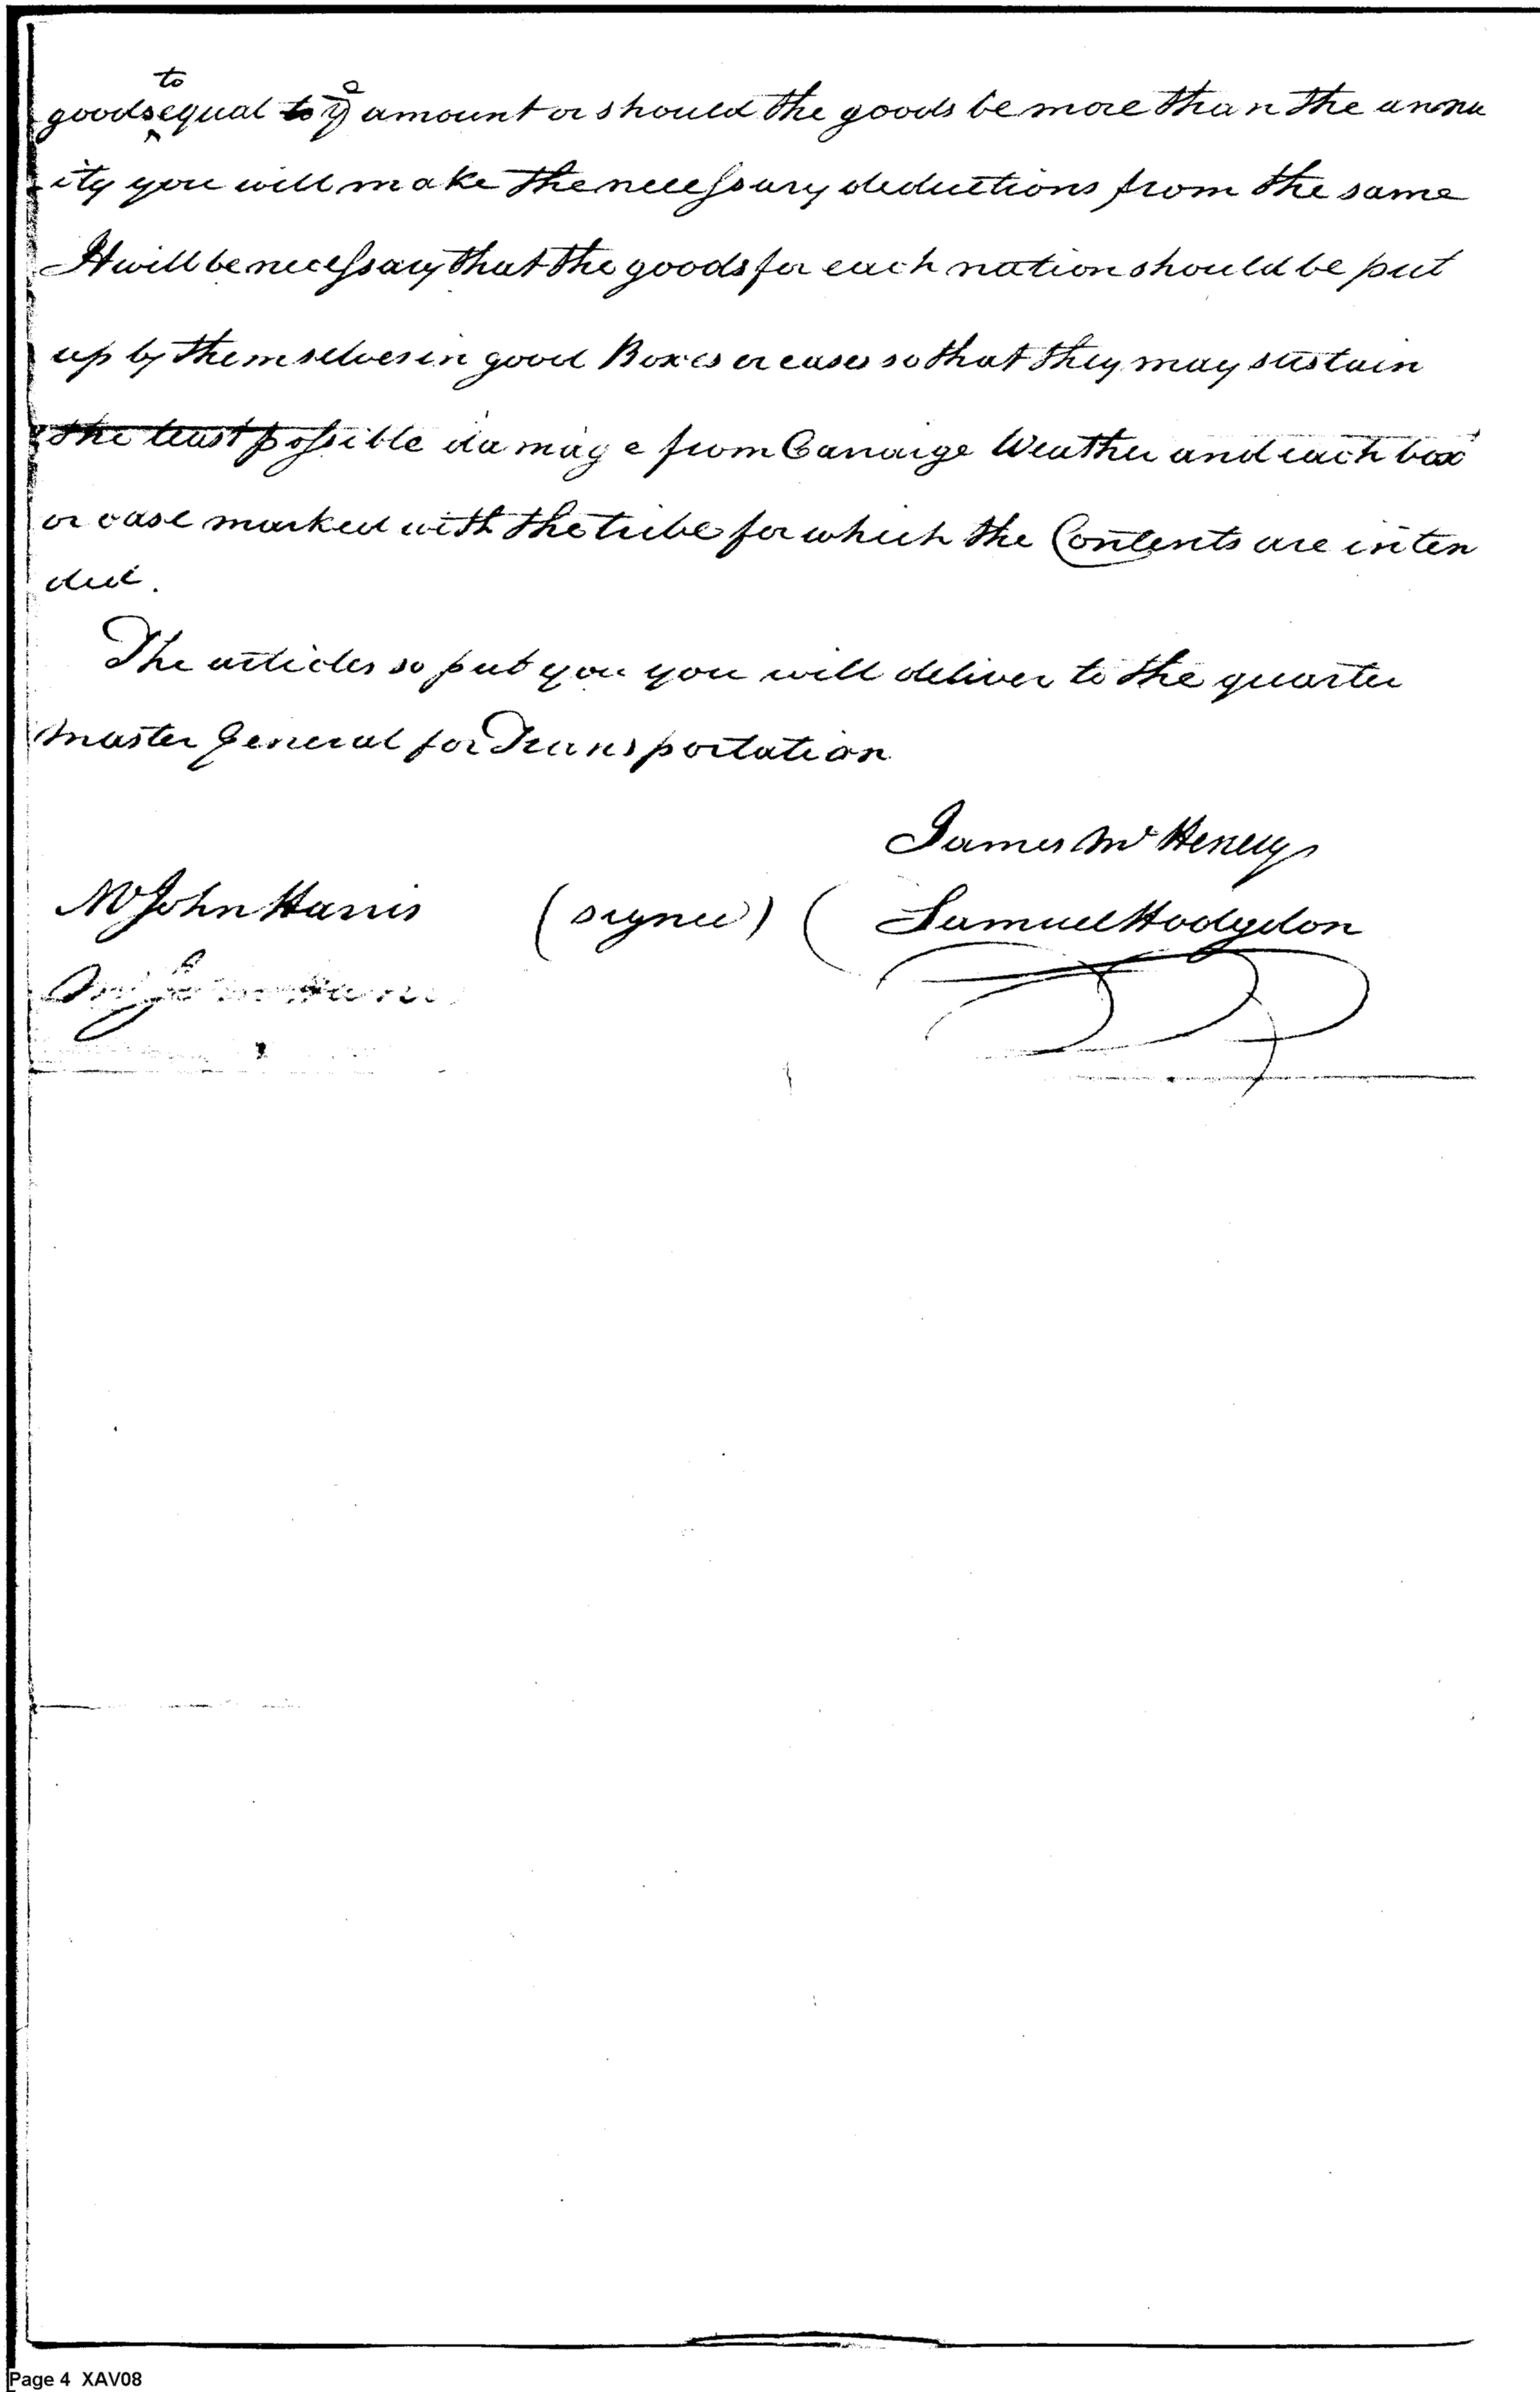 goods ^to equal to ye amount or should the goods be more than the annu
ity you will make the necessary deductions from the same
It will be necessary that the goods for each nation should be put
up by themselves in good Boxes or cases so that they may sustain
the least possible damage from Carraige Weather and each box
or case marked with the tribe for which the Contents are inten
ded.
The articles so put you you will deliver to the quarter
master General for Transportation
James McHenery
Mr John Harris (signed) ( Samuel Hodgdon
Page 4 XAV08